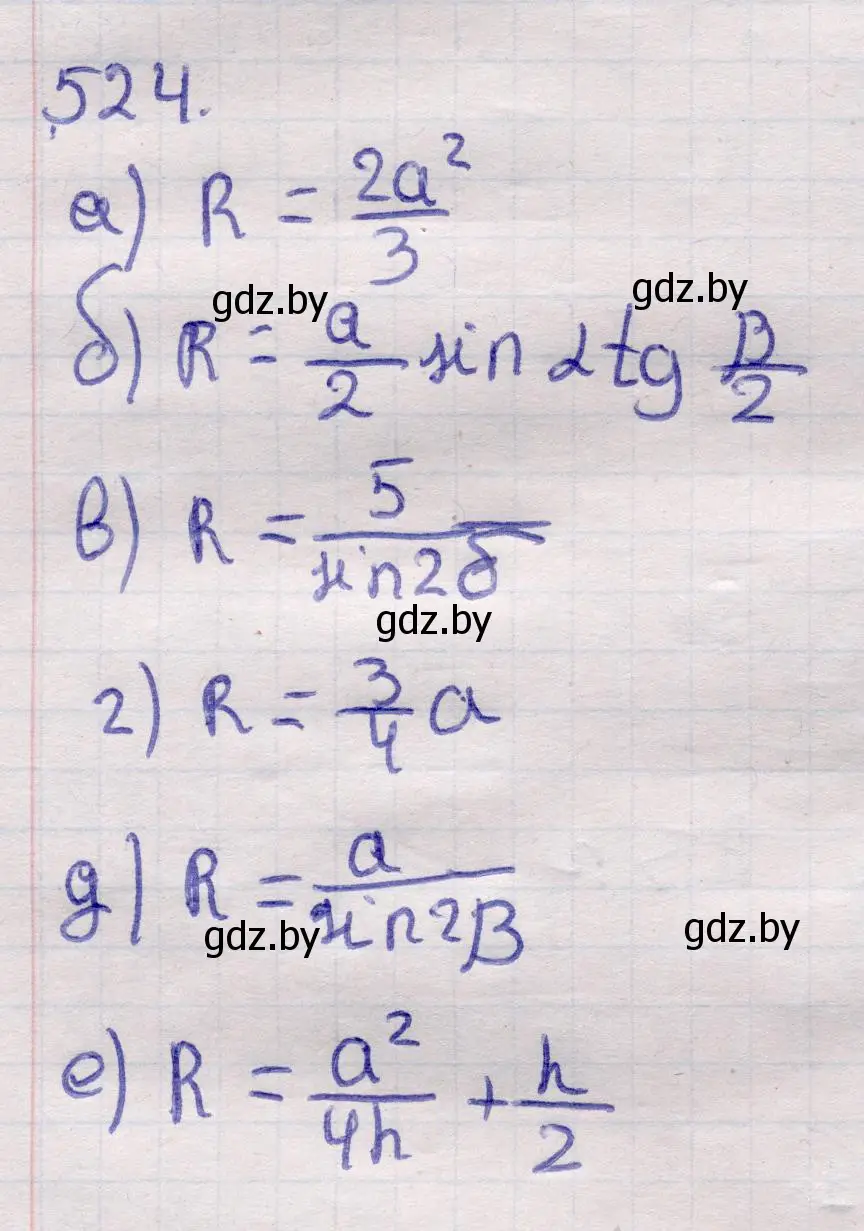 524.
а) R = 2a²/3
gdz.by gdz.by
б) R = a/2 sin α tg β/2
в) R = 5/sin2б
gdz.by
г) R = 3/4 a
д) R = a/sin2β
gdz.by gdz.by
е) R = a²/4h + h/2